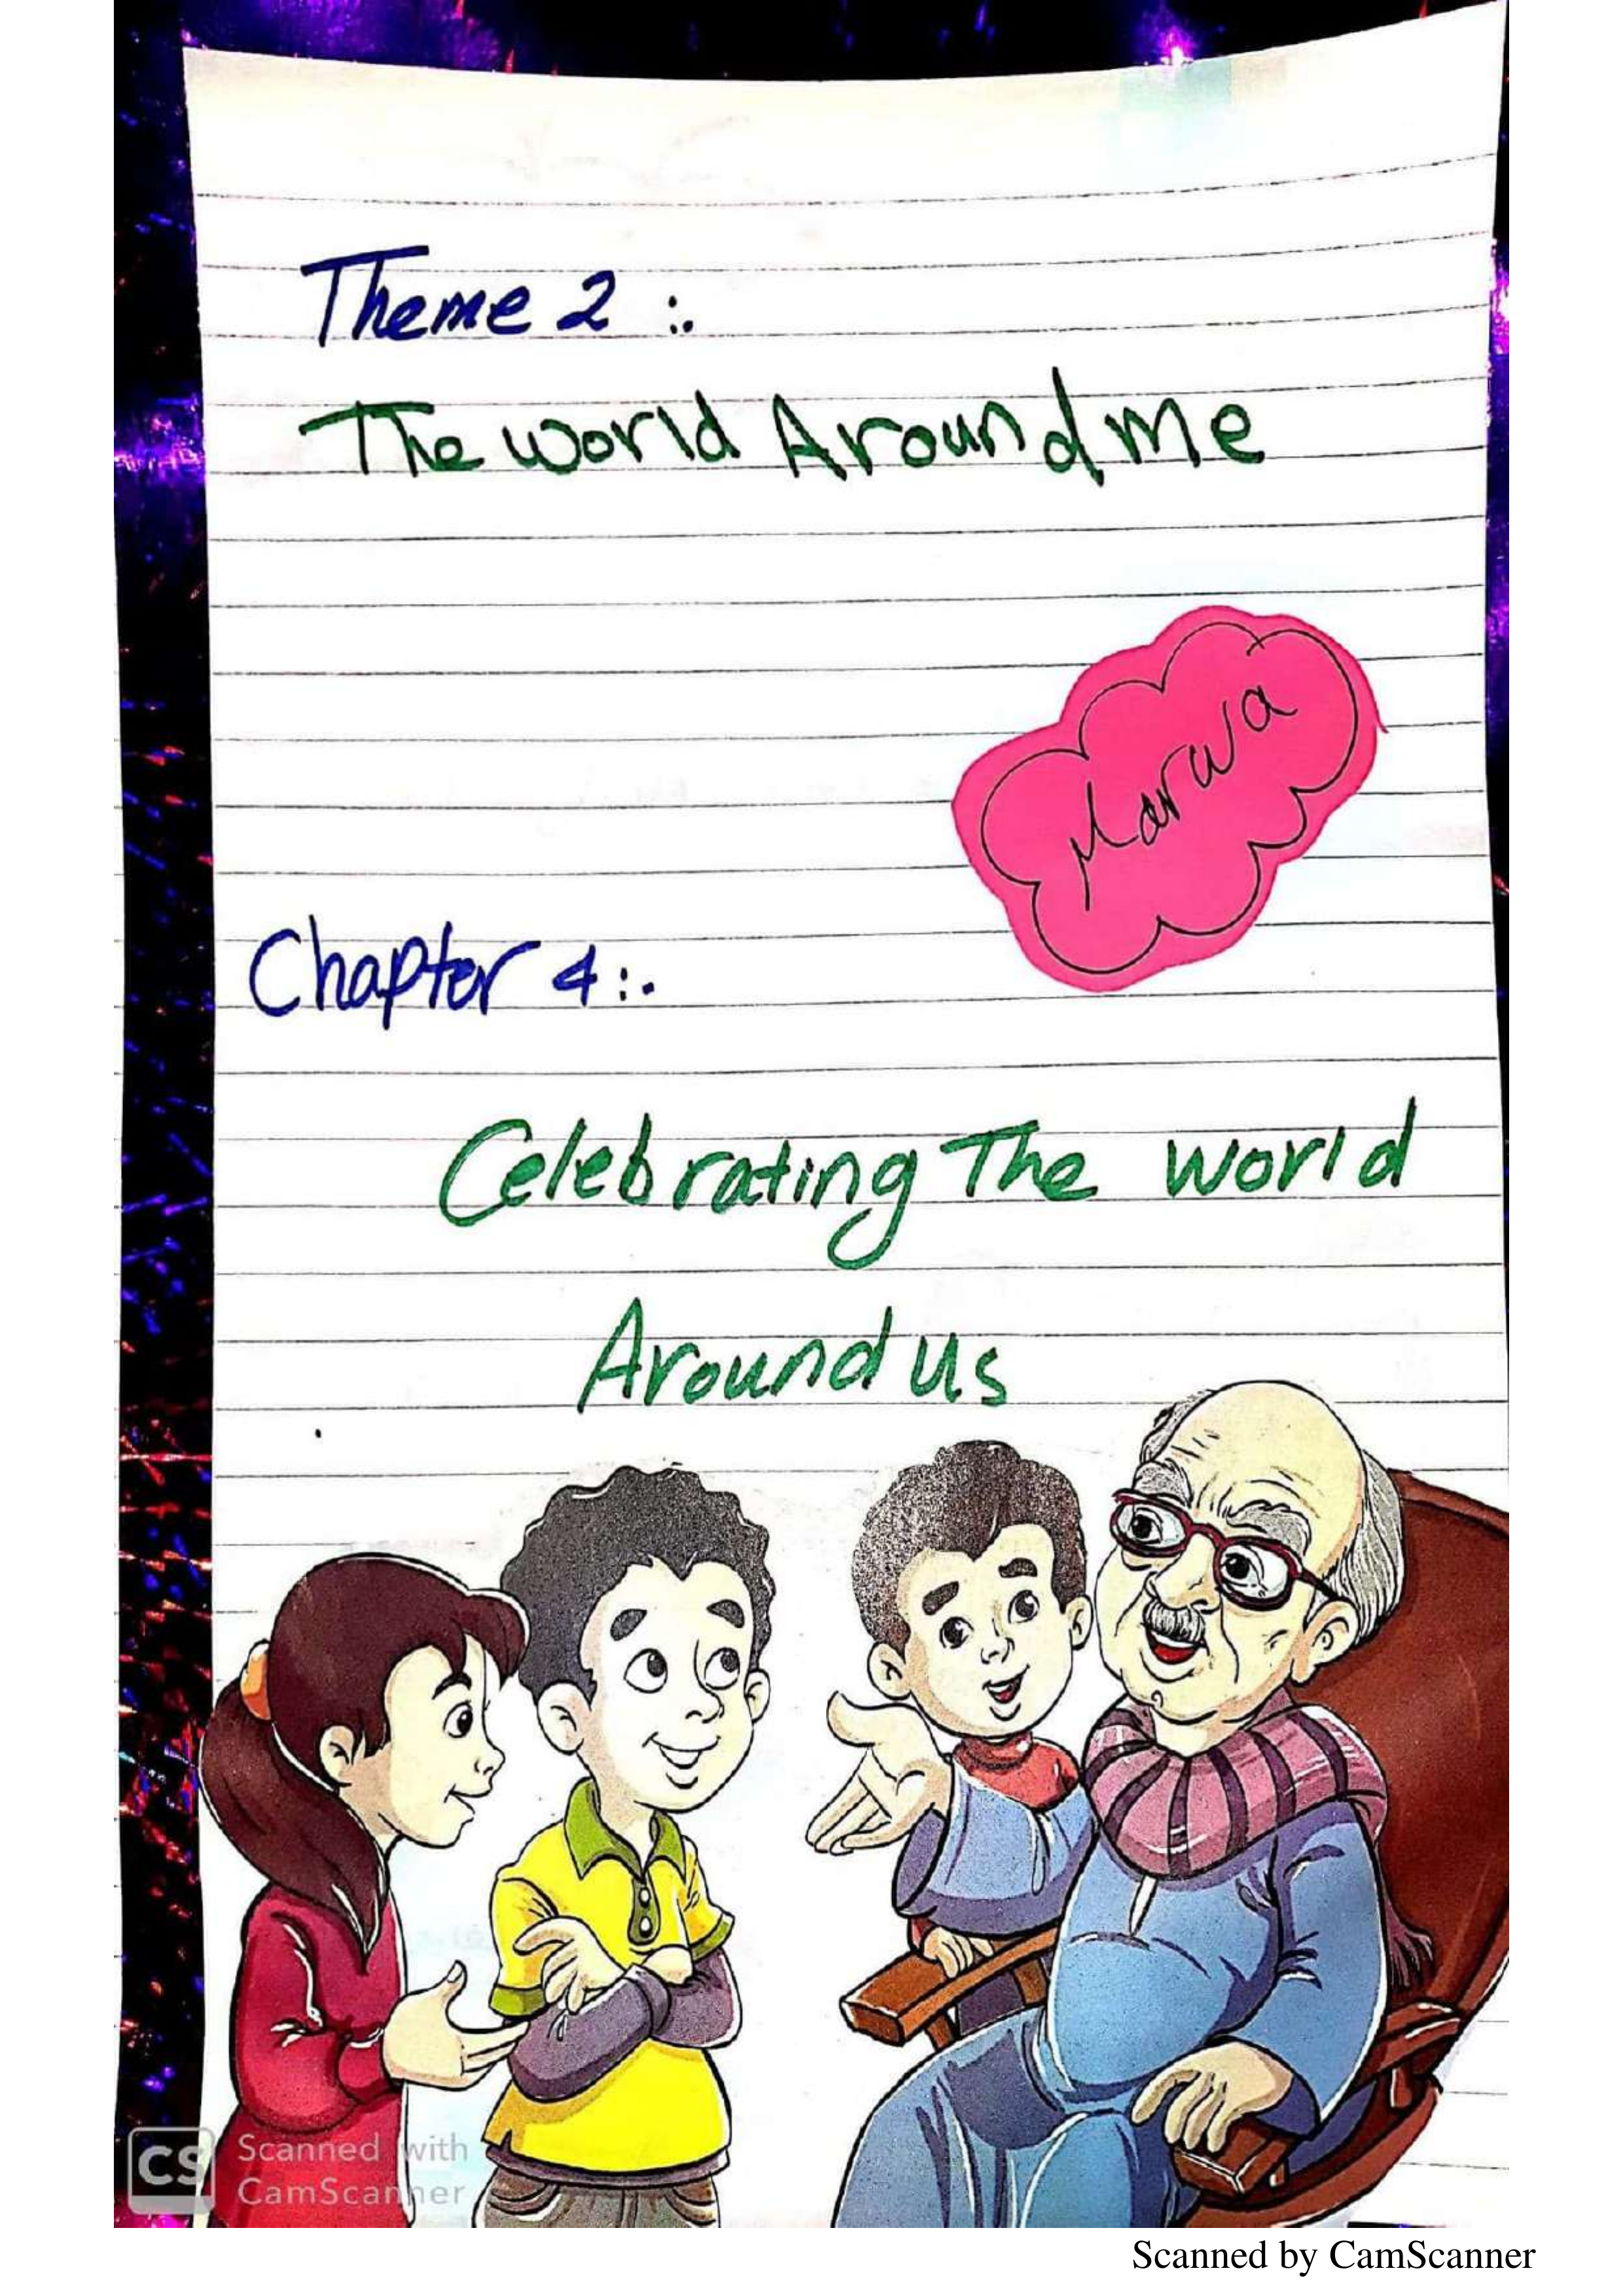 Theme 2 :.
The world Around me
Marwa
Chapter 4:.
Celebrating The world
Around us
CS Scanned with
CamScanner
Scanned by CamScanner